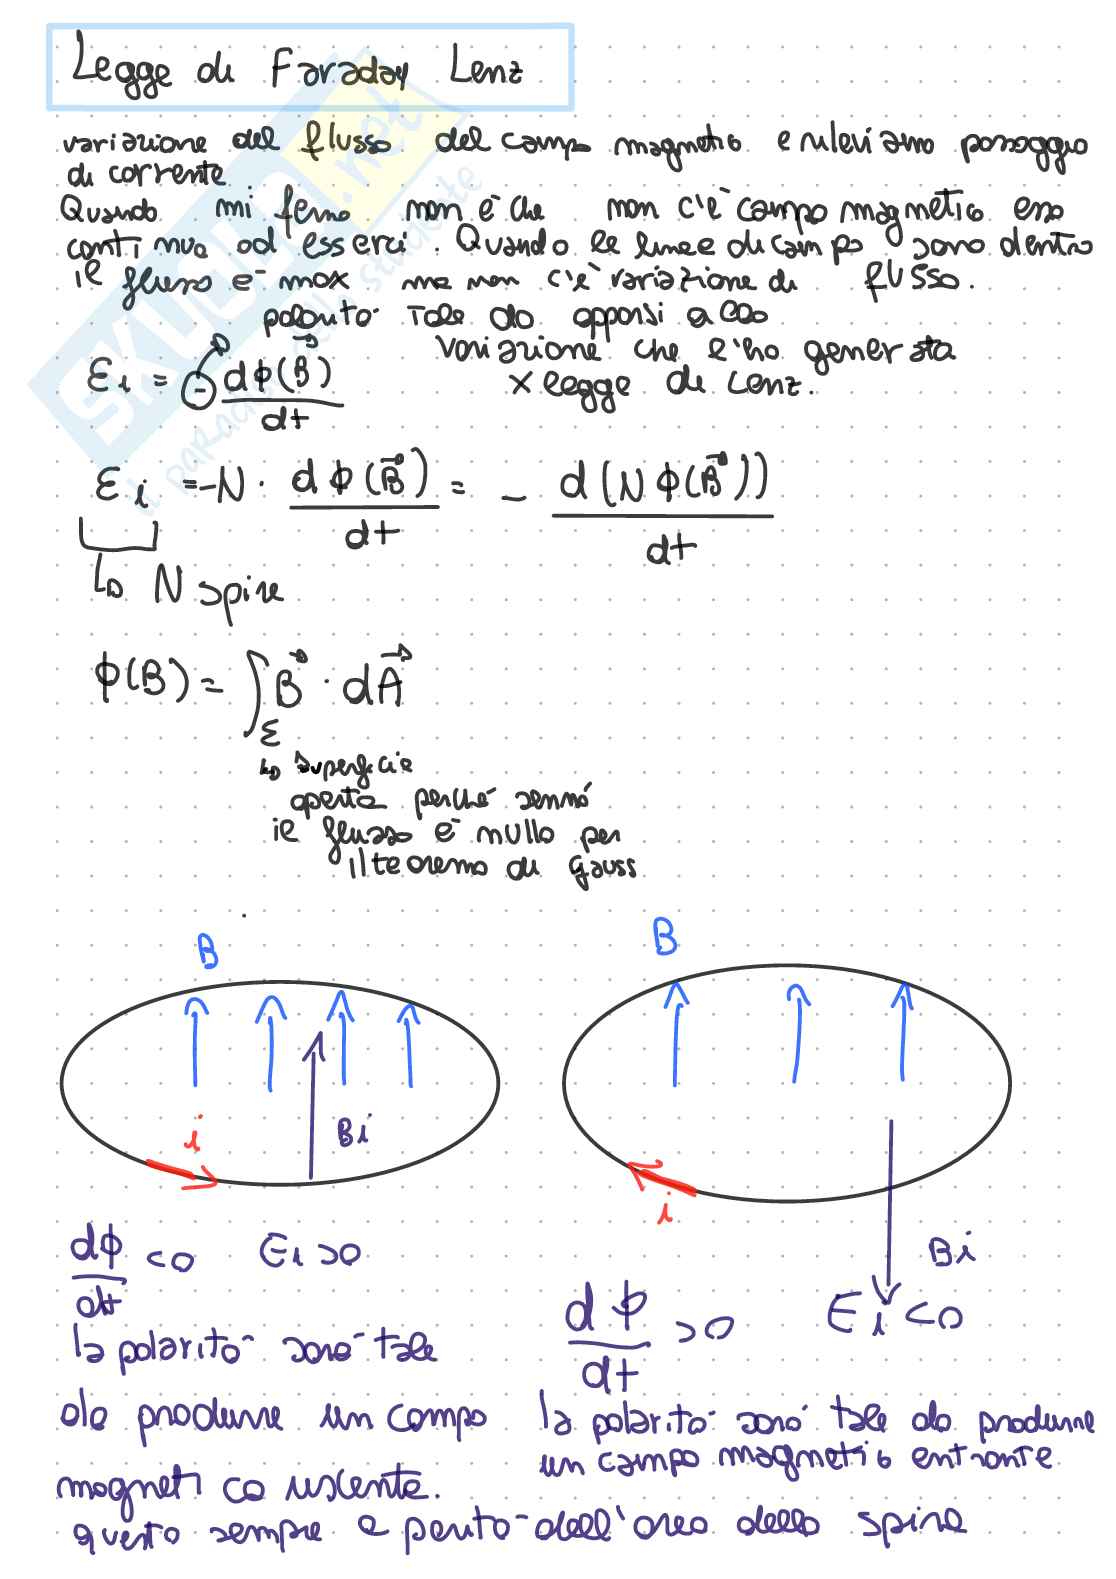 Legge di Faraday Lenz
variazione del flusso del campo magnetico e rileviamo passaggio
di corrente
Quando mi fermo non è che non c'è campo magnetico esso
continua ad esserci. Quando le linee di campo sono dentro
il flusso è max ma non c'è variazione di flusso.
polarità tale da opporsi alla
variazione che l'ha generata
x legge di Lenz.
Ei = - dϕ(B⃗)/dt
Ei = -N · dϕ(B⃗)/dt = - d(Nϕ(B⃗))/dt
↳ N spire
ϕ(B) = ∫Σ B⃗ · dA⃗
↳ superficie
aperta perché sennò
il flusso è nullo per
il teorema di gauss
B
B
Bi
i
i
Bi
dϕ/dt <0 Ei >0
dϕ/dt >0 Ei <0
la polarità sarà tale
da produrre un campo
magnetico uscente.
la polarità sarà tale da produrre
un campo magnetico entrante
questo sempre a parità dell'area della spira
SKUOLA.net
il paradiso dello studente